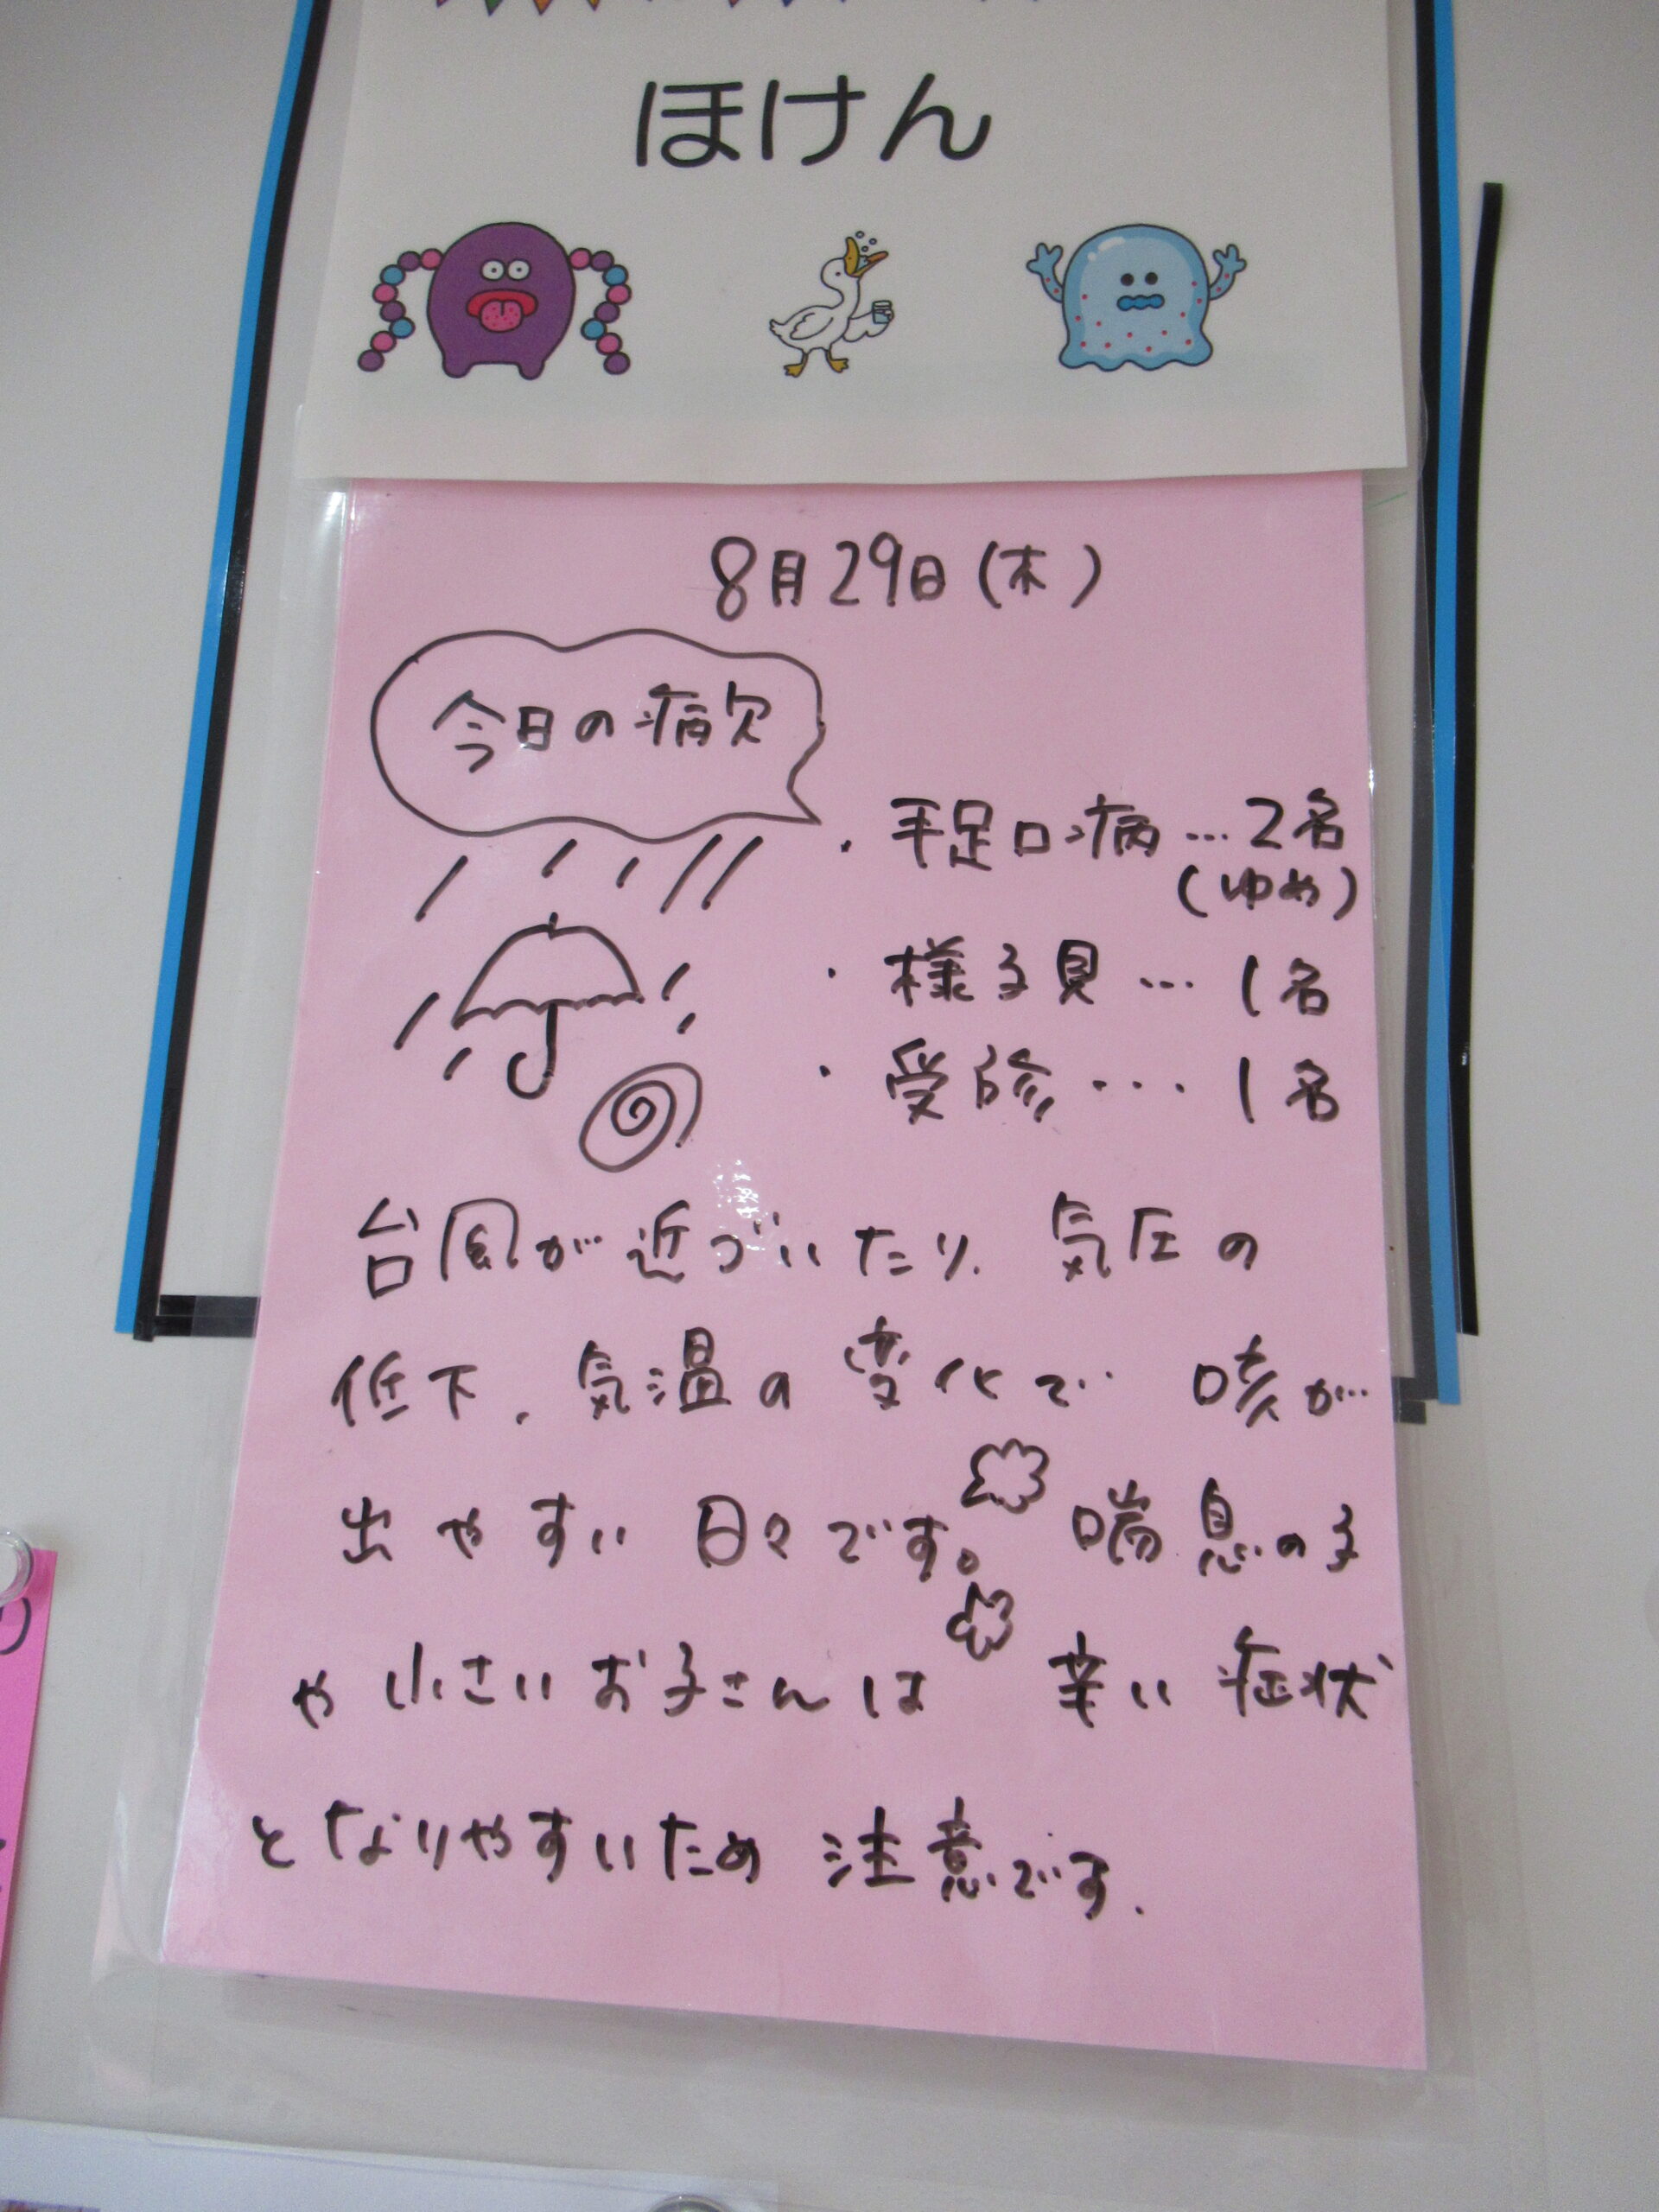 ほけん
8月29日(木)
今日の病欠
・手足口病…2名
(ゆめ)
・様子見…1名
・受診…1名
台風が近づいたり、気圧の
低下、気温の変化で 咳が
出やすい日々です。喘息の子
や小さいお子さんは 辛い症状
となりやすいため 注意です.